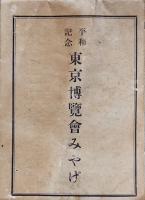 平和
記念
東京博覽會みやげ